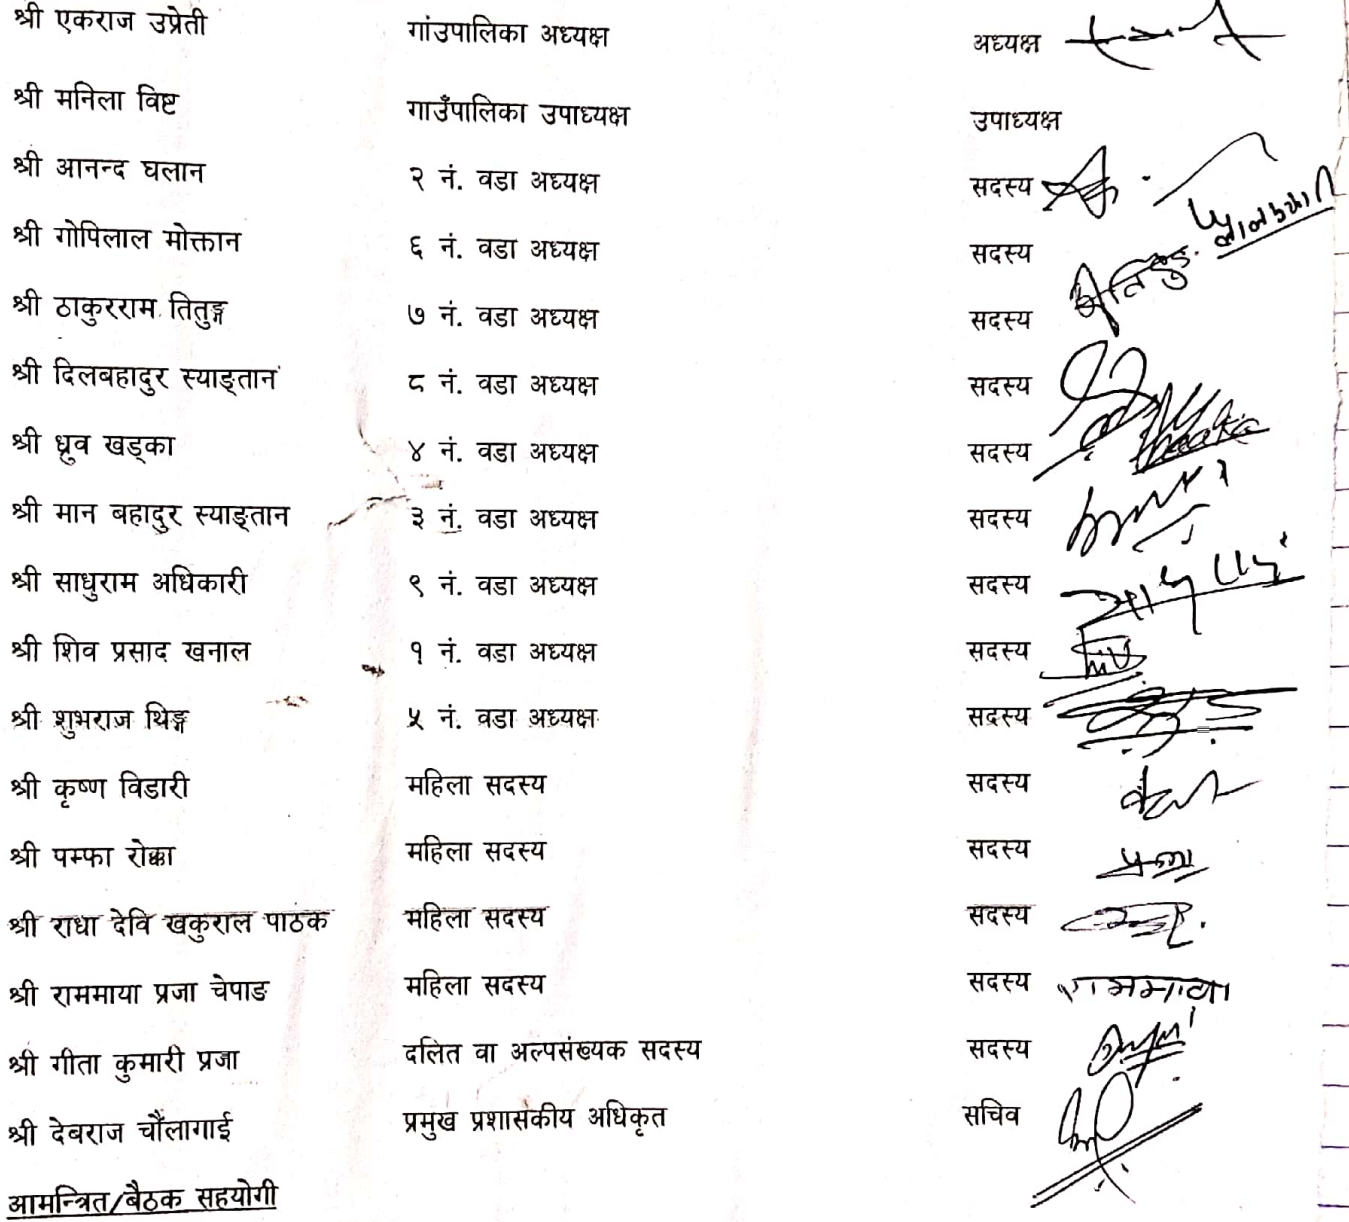 श्री एकराज उप्रेती गांउपालिका अध्यक्ष अध्यक्ष
श्री मनिला विष्ट गाउँपालिका उपाध्यक्ष उपाध्यक्ष
श्री आनन्द घलान २ नं. वडा अध्यक्ष सदस्य
श्री गोपिलाल मोक्तान ६ नं. वडा अध्यक्ष सदस्य
श्री ठाकुरराम तितुङ्ग ७ नं. वडा अध्यक्ष सदस्य
श्री दिलबहादुर स्याङ्तान ८ नं. वडा अध्यक्ष सदस्य
श्री ध्रुव खड्का ४ नं. वडा अध्यक्ष सदस्य
श्री मान बहादुर स्याङ्तान ३ नं. वडा अध्यक्ष सदस्य
श्री साधुराम अधिकारी ९ नं. वडा अध्यक्ष सदस्य
श्री शिव प्रसाद खनाल १ नं. वडा अध्यक्ष सदस्य
श्री शुभराज थिङ्ग ५ नं. वडा अध्यक्ष सदस्य
श्री कृष्ण विडारी महिला सदस्य सदस्य
श्री पम्फा रोक्का महिला सदस्य सदस्य
श्री राधा देवि खकुराल पाठक महिला सदस्य सदस्य
श्री राममाया प्रजा चेपाङ महिला सदस्य सदस्य राममाया
श्री गीता कुमारी प्रजा दलित वा अल्पसंख्यक सदस्य सदस्य
श्री देबराज चौंलागाई प्रमुख प्रशासकीय अधिकृत सचिव
आमन्त्रित/बैठक सहयोगी